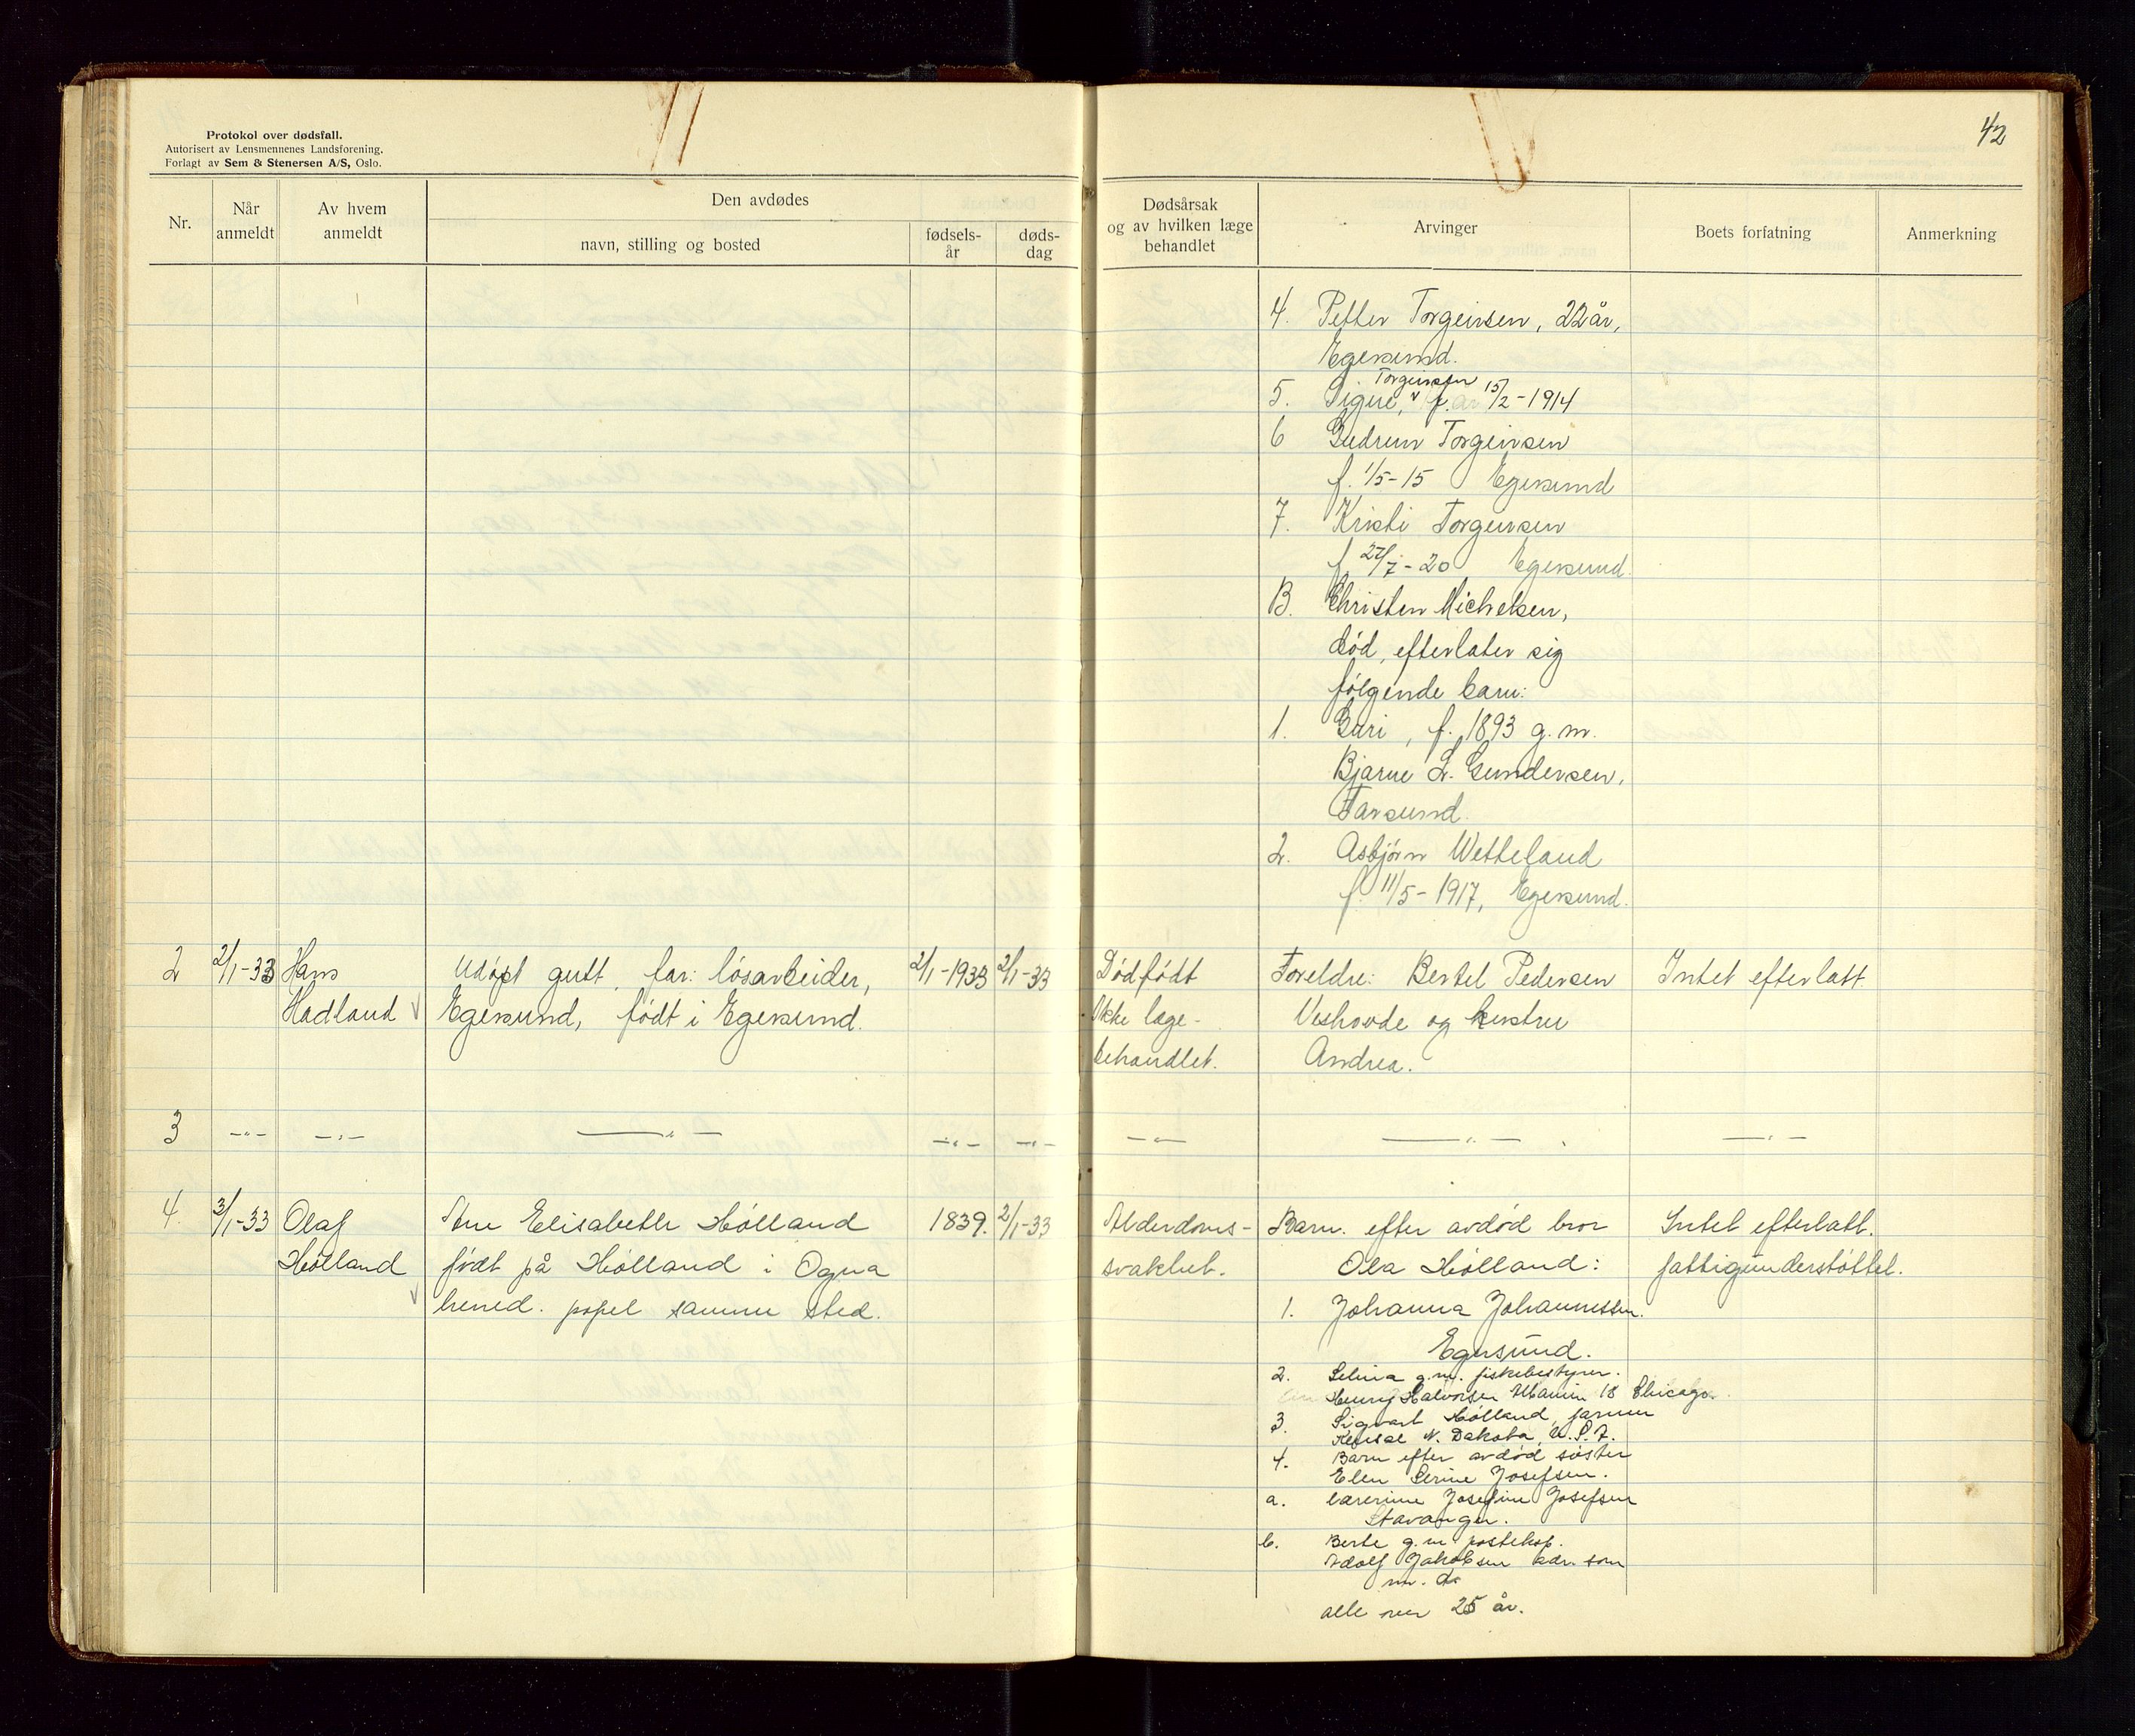 Protokol over dødsfall.
Autorisert av Lensmennenes Landsforening.
Forlagt av Sem & Stenersen A/S, Oslo.
Nr.
Når anmeldt
Av hvem anmeldt
Den avdødes
navn, stilling og bosted
fødsels-år
døds-dag
42
Dødsårsak
og av hvilken læge
behandlet
Arvinger
Boets forfatning
Anmerkning
4. Petter Torgeirsen, 22 år,
Egersund.
Torgeirsen
5. Signe, f. 15/2-1914
6 Gudrun Torgeirsen
f. 1/5-15 Egersund
7. Kristi Torgeirsen
f 27/7-20 Egersund.
B. Christen Michelsen,
død, efterlater sig
følgende barn:
1. Guri, f. 1893 g.m.
Bjarne L. Gundersen,
Farsund.
2. Asbjørn Wetteland
f. 11/5-1917, Egersund.
2 2/1-33 Hans Udøpt gutt, far: løsarbeider, 2/1-1933 2/1-33
Hadland Egersund, født i Egersund.
Dødfødt Foreldre: Bertel Pedersen Intet efterlatt
Ikke læge- Veshovde og hustru
behandlet. Andrea.
3 -"- -"- -"- -"- -"-
-"- -"- -"-
4. 3/1-33 Olaf Ane Elisabeth Hølland 1839. 2/1-33
Hølland født på Hølland i Ogna
herred. samme sted.
Alderdoms- Barn efter avdød bror Intet efterlatt.
svakhet. Ola Hølland: fattigunderstøttet.
1. Johanna Johannessen.
Egersund.
2. Selina g.m. fiskebestyrer.
Henry Halvorsen 18 Chicago.
3. Sigvart Hølland, farmer
N. Dakota, U.S.A.
4. Barn efter avdød søster
Elen Serine Josefsen.
a. Josefine Josefsen
Stavanger.
b. Berte g.m. posteksp.
Adolf Jakobsen adr. som
nr. a
alle over 25 år.